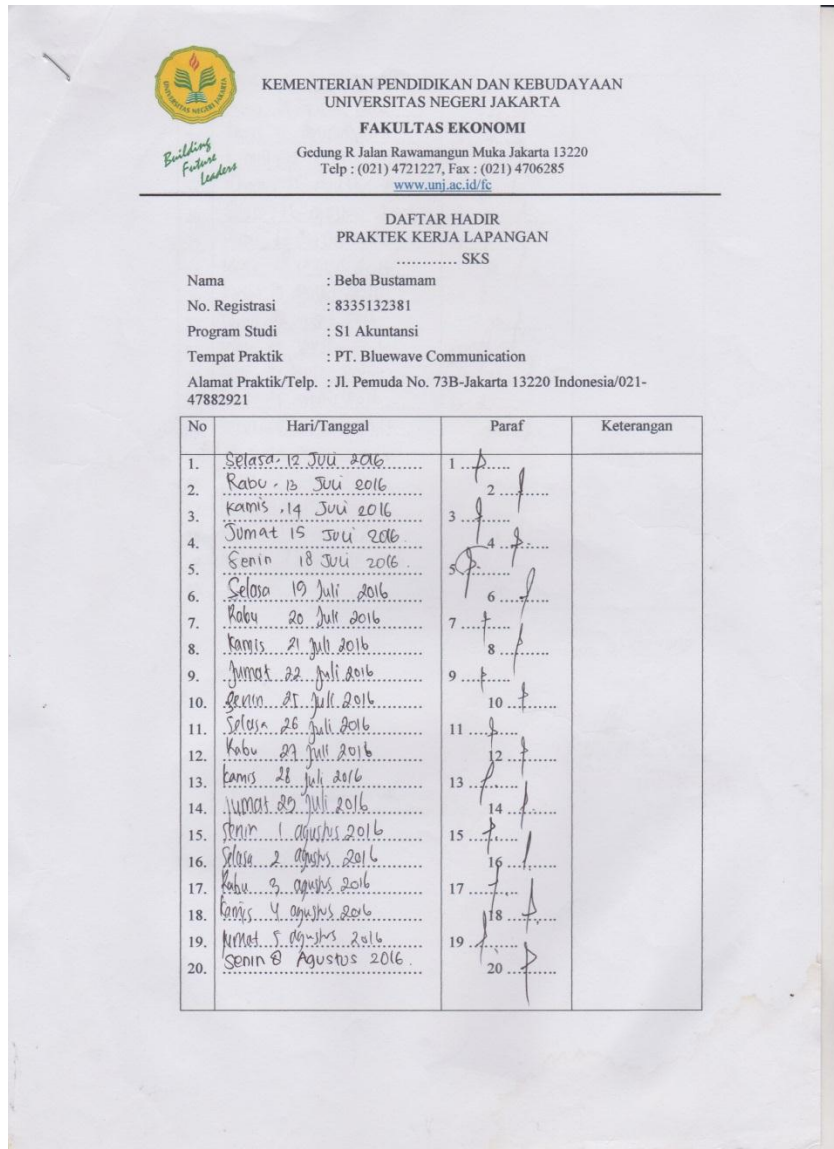 UNIVERSITAS NEGERI JAKARTA
Building
Future
Leaders
KEMENTERIAN PENDIDIKAN DAN KEBUDAYAAN
UNIVERSITAS NEGERI JAKARTA
FAKULTAS EKONOMI
Gedung R Jalan Rawamangun Muka Jakarta 13220
Telp : (021) 4721227, Fax : (021) 4706285
www.unj.ac.id/fc
DAFTAR HADIR
PRAKTEK KERJA LAPANGAN
............ SKS
Nama : Beba Bustamam
No. Registrasi : 8335132381
Program Studi : S1 Akuntansi
Tempat Praktik : PT. Bluewave Communication
Alamat Praktik/Telp. : Jl. Pemuda No. 73B-Jakarta 13220 Indonesia/021-
47882921
No Hari/Tanggal Paraf Keterangan
1. Selasa, 12 Juli 2016 1
2. Rabu, 13 Juli 2016 2
3. Kamis, 14 Juli 2016 3
4. Jumat 15 Juli 2016. 4
5. Senin 18 Juli 2016. 5
6. Selasa 19 Juli 2016 6
7. Rabu 20 Juli 2016 7
8. Kamis 21 Juli 2016 8
9. Jumat 22 Juli 2016 9
10. Senin 25 Juli 2016 10
11. Selasa 26 Juli 2016 11
12. Rabu 27 Juli 2016 12
13. Kamis 28 Juli 2016 13
14. Jumat 29 Juli 2016 14
15. Senin 1 agustus 2016 15
16. Selasa 2 agustus 2016 16
17. Rabu 3 agustus 2016 17
18. Kamis 4 agustus 2016 18
19. Jumat 5 agustus 2016 19
20. Senin 8 Agustus 2016. 20